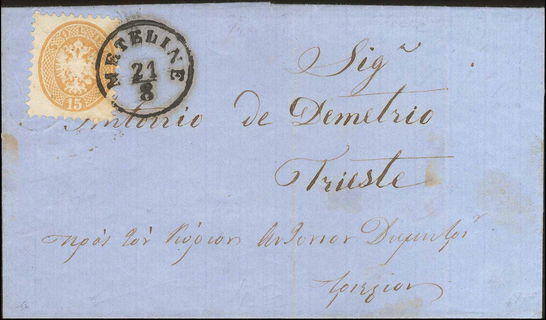 SOLDI
15
METELINE
21/8
Sigr
Antonio de Demetrio
Trieste
πρὸς τὸν Κύριον Αντονιον Δημητρι